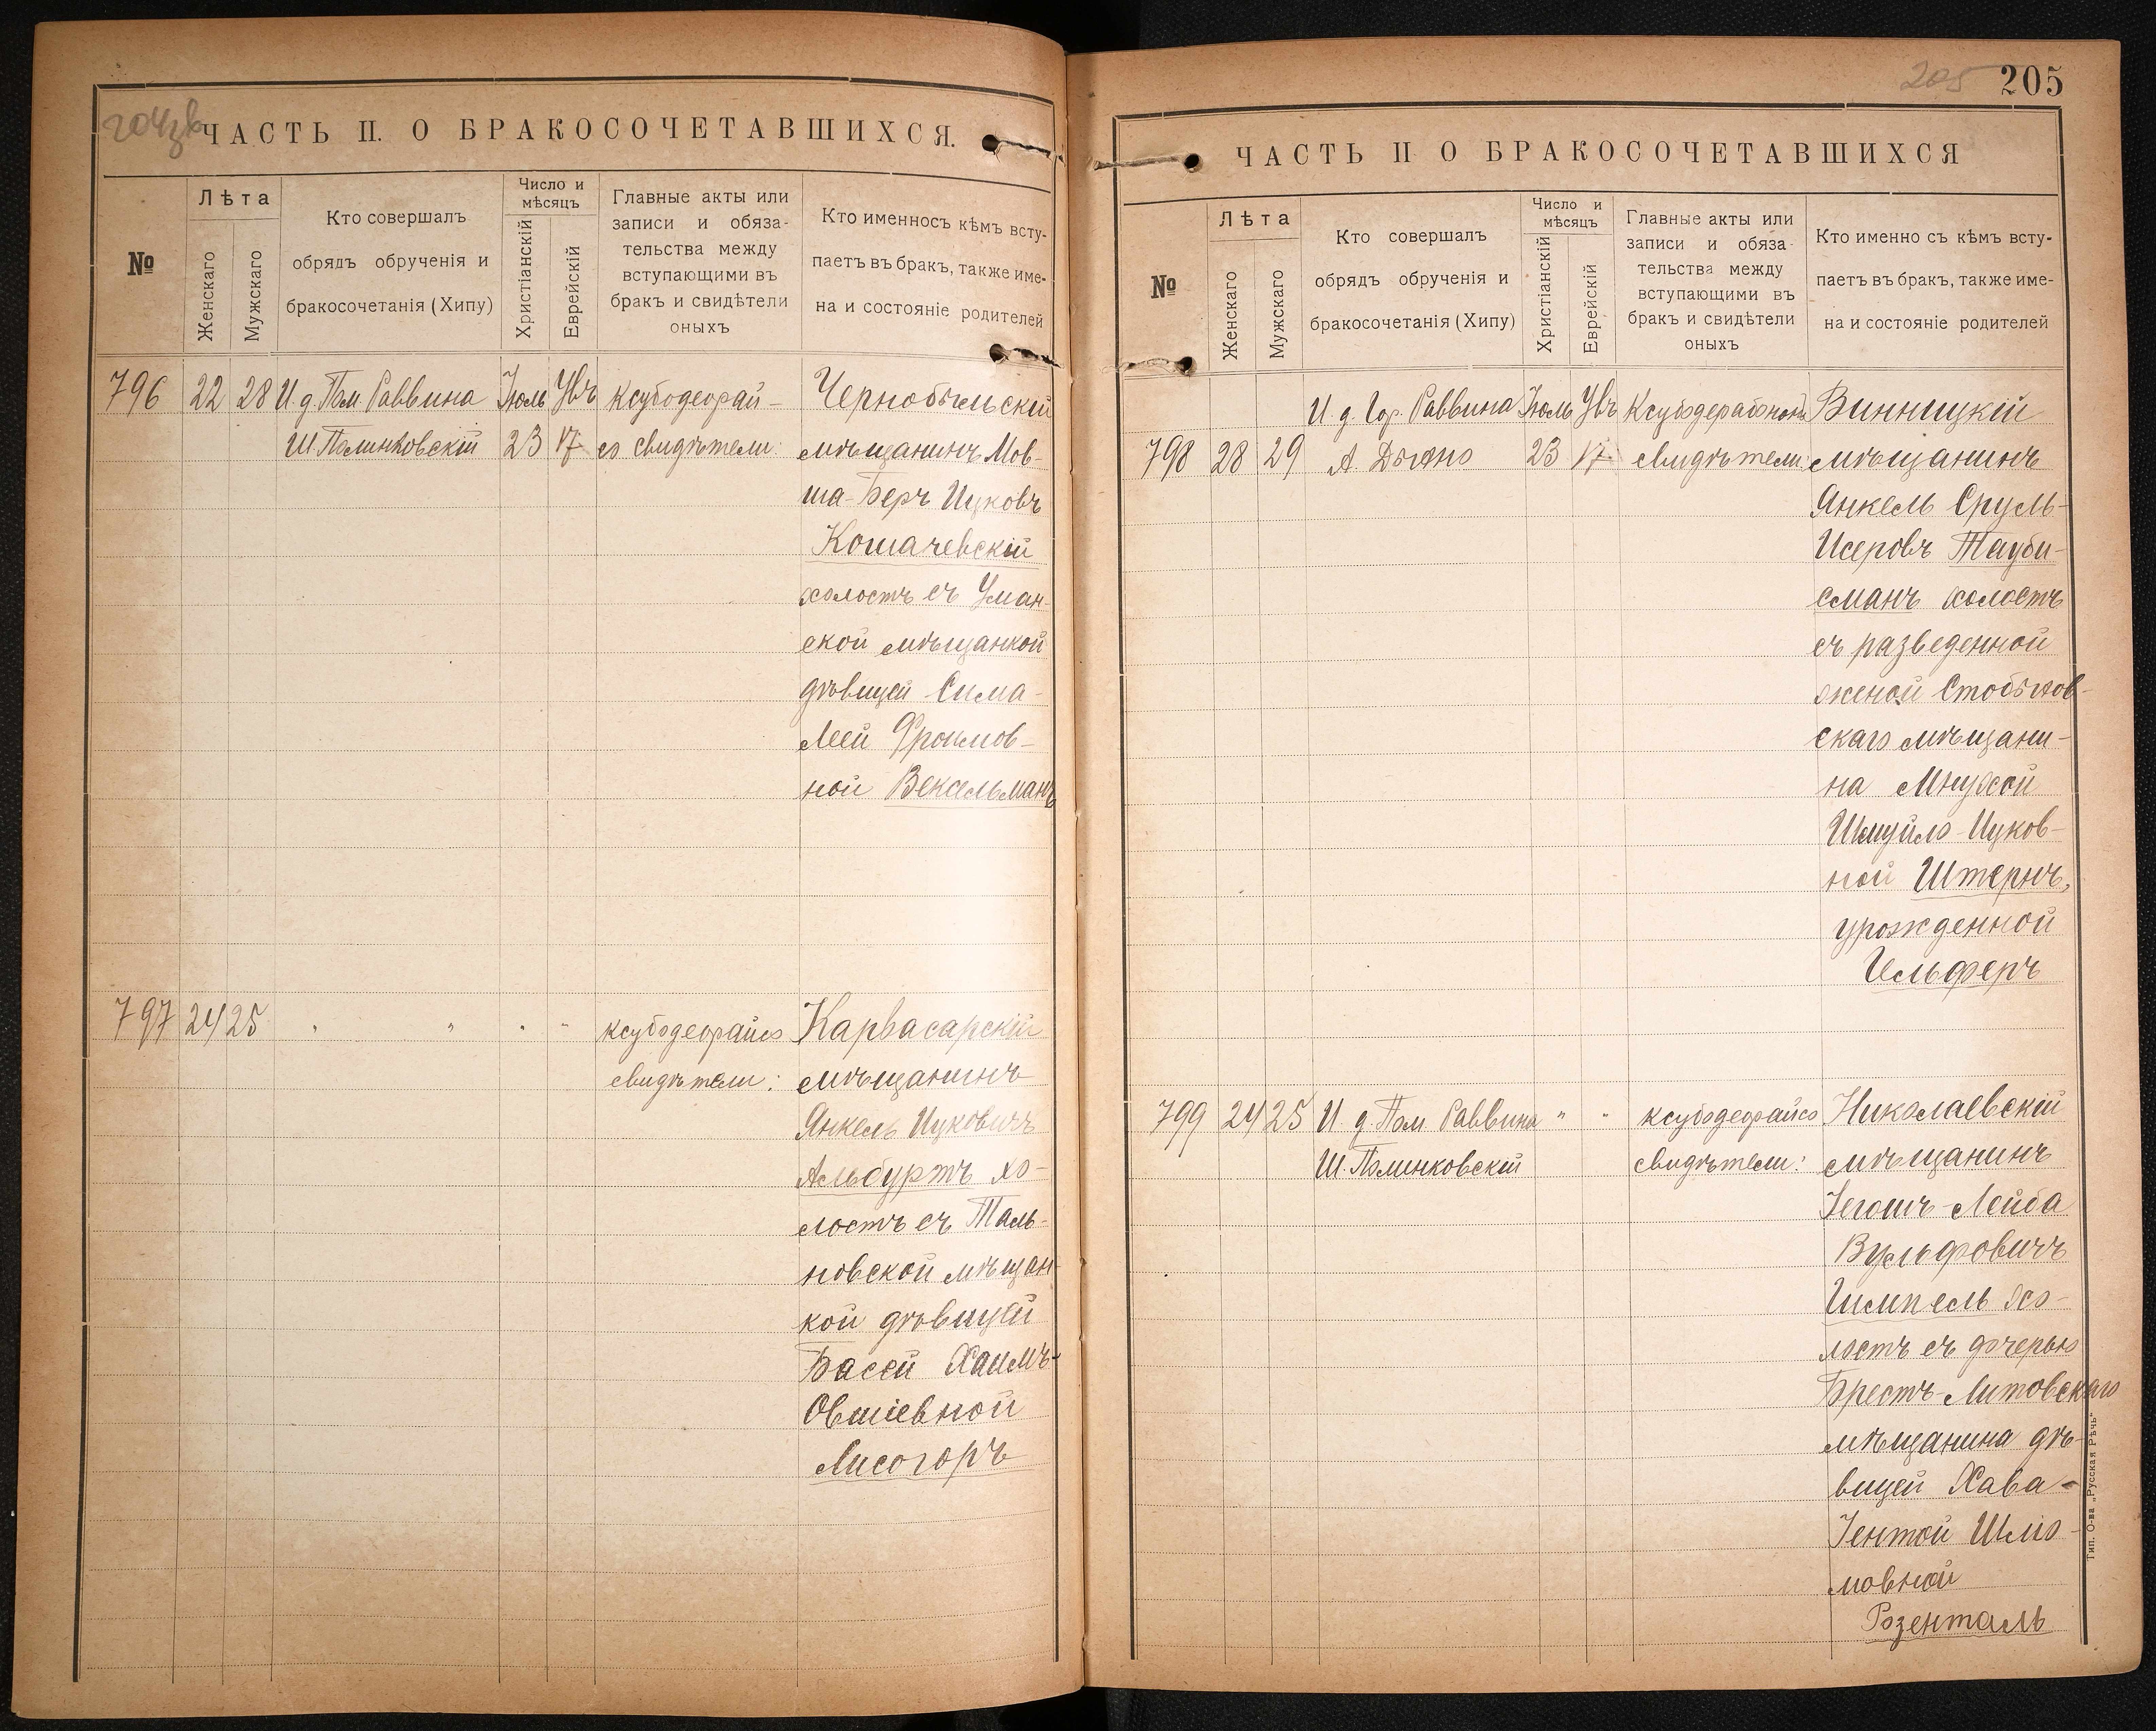 204 зв
ЧАСТЬ II. О БРАКОСОЧЕТАВШИХСЯ.
№
Лѣта
Женскаго
Мужскаго
Кто совершалъ
обрядъ обрученія и
бракосочетанія (Хипу)
Число и
мѣсяцъ
Христіанскій
Еврейскій
Главные акты или
записи и обяза-
тельства между
вступающими въ
бракъ и свидѣтели
оныхъ
Кто именносъ кѣмъ всту-
паетъ въ бракъ, также име-
на и состояніе родителей
796 22 28 И. д. Пом Раввина Іюль Увъ Ксубодеорай- Чернобыльскій
Ш. Полинковскій 23 17 со свидѣтели: мѣщанинъ Мов-
ша-Беръ Ицковъ
Кошачевскій
холостъ съ Уман-
ской мѣщанкой
дѣвицей Сима-
Леей Фроимов-
ной Вексельманъ
797 24 25 " " " " ксубодеорайсо Карвасарскій
свидѣтели: мѣщанинъ
Янкель Ицковичъ
Альбуртъ хо-
лостъ съ Таль-
новской мѣщан-
кой дѣвицей
Басей Хаимъ-
Овшіевной
Лисогоръ
205
205
ЧАСТЬ II О БРАКОСОЧЕТАВШИХСЯ
№
Лѣта
Женскаго
Мужскаго
Кто совершалъ
обрядъ обрученія и
бракосочетанія (Хипу)
Число и
мѣсяцъ
Христіанскій
Еврейскій
Главные акты или
записи и обяза-
тельства между
вступающими въ
бракъ и свидѣтели
оныхъ
Кто именно съ кѣмъ всту-
паетъ въ бракъ, также име-
на и состояніе родителей
И. д. Гор. Раввина Іюль Увъ Винницкій
798 28 29 А. 23 17 свидѣтели: мѣщанинъ
Янкель Сруль-
Исеровъ Тауби-
сманъ холостъ
съ разведенной
женой Стобыхов-
скаго мѣщани-
на Мнухой
Шмуйло-Ицков-
ной Штернъ,
урожденной
Гельферъ
799 24 25 И. д. Пом Раввина " " ксубодеорайсо Николаевскій
Ш. Полинковскій свидѣтели: мѣщанинъ
Іегошъ-Лейба
Вульфовичъ
Гимпель хо-
лостъ съ дочерью
Брестъ-Литовскаго
мѣщанина дѣ-
вицей Хава-
Іентой Шліо-
мовной
Розенталь
Тип. О-ва „Русская Рѣчь“